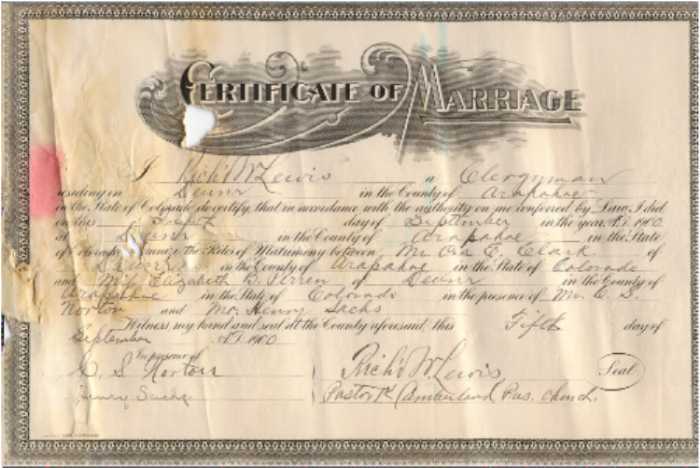 CERTIFICATE OF MARRIAGE
I Rich'd W. Lewis a Clergyman
residing in Denver in the County of Arapahoe
in the State of Colorado do certify, that in accordance with the authority on me conferred by Law, I did
on this day of September in the year A.D. 1900
at Denver in the County of Arapahoe in the State
of Colorado solemnize the Rites of Matrimony between Mr. E. Clark of
Denver in the County of Arapahoe in the State of Colorado
and Elizabeth B. of Denver in the County of
Arapahoe in the State of Colorado in the presence of Mr. C. S.
Norton and Mr. Henry Sachs
Witness my hand and seal at the County aforesaid, this Fifth day of
September A.D. 1900
In presence of
C. S. Norton Rich'd W. Lewis Seal
Henry Sachs Pastor Cumberland Pres. Church.